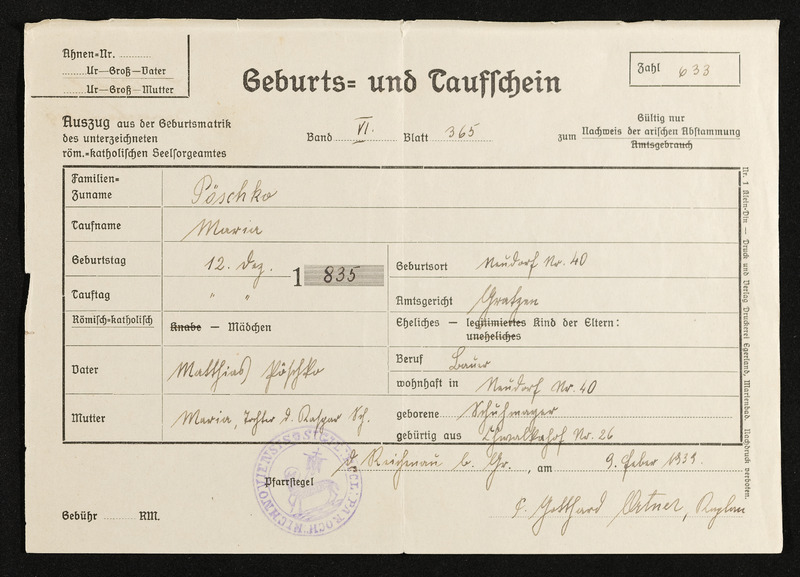 Ahnen=Nr. ............
........Ur—Groß—Vater
........Ur—Groß—Mutter
Geburts= und Taufschein
Zahl 633
Auszug aus der Geburtsmatrik
des unterzeichneten
röm.=katholischen Seelsorgeamtes
Band VI. Blatt 365
Gültig nur
zum Nachweis der arischen Abstammung
Amtsgebrauch
Familien=
Zuname Pöschko
Taufname Maria
Geburtstag 12. Dez. 1 835
Geburtsort Neudorf Nr. 40
Tauftag " "
Amtsgericht Gratzen
Römisch=katholisch Knabe — Mädchen
Eheliches — legitimiertes Kind der Eltern:
uneheliches
Vater Matthias Pöschko
Beruf Bauer
wohnhaft in Neudorf Nr. 40
Mutter Maria, Tochter d. Kaspar Sch.
geborene Schuhmayer
gebürtig aus Nr. 26
Reichenau b. Gr., am 9. Feber 1939.
Pfarrsiegel
P. Gotthard Ortner, Kaplan
Gebühr ............ RM.
Nr. 1 Klein=Din — Druck und Verlag Druckerei Egerland, Marienbad. Nachdruck verboten.